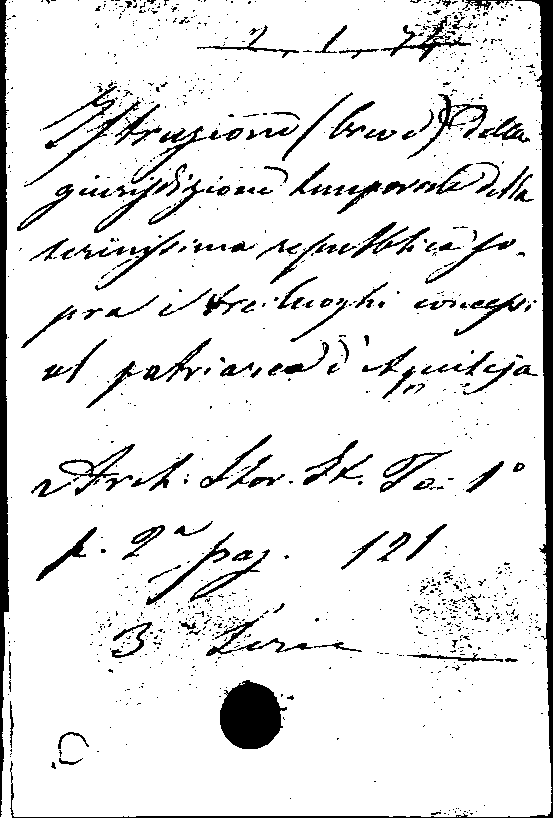 2, 1, 74
Istruzione (breve) della
giurisdizione temporale della
serenissima repubblica so-
pra i tre luoghi concessi
al patriarca d'Aquileja
Arch. Stor. It. To. 1°
p. 2ª pag. 121
3 Serie